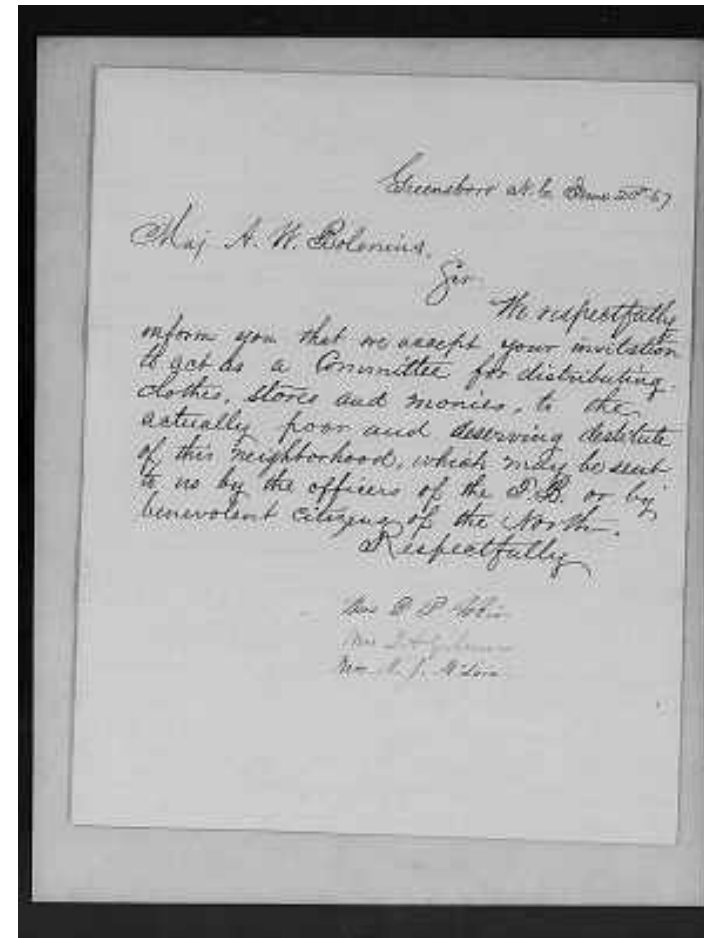 Greensboro N.C. June 20th 67
Maj A. W. Bolenius.
Sir
We respectfully
inform you that we accept your invitation
to act as a Committee for distributing
clothes, stores and monies, to the
actually poor and deserving destitute
of this neighborhood, which may be sent
to us by the officers of the F.B. or by
benevolent citizens of the North.
Respectfully
Mrs D P
Mrs
Mrs